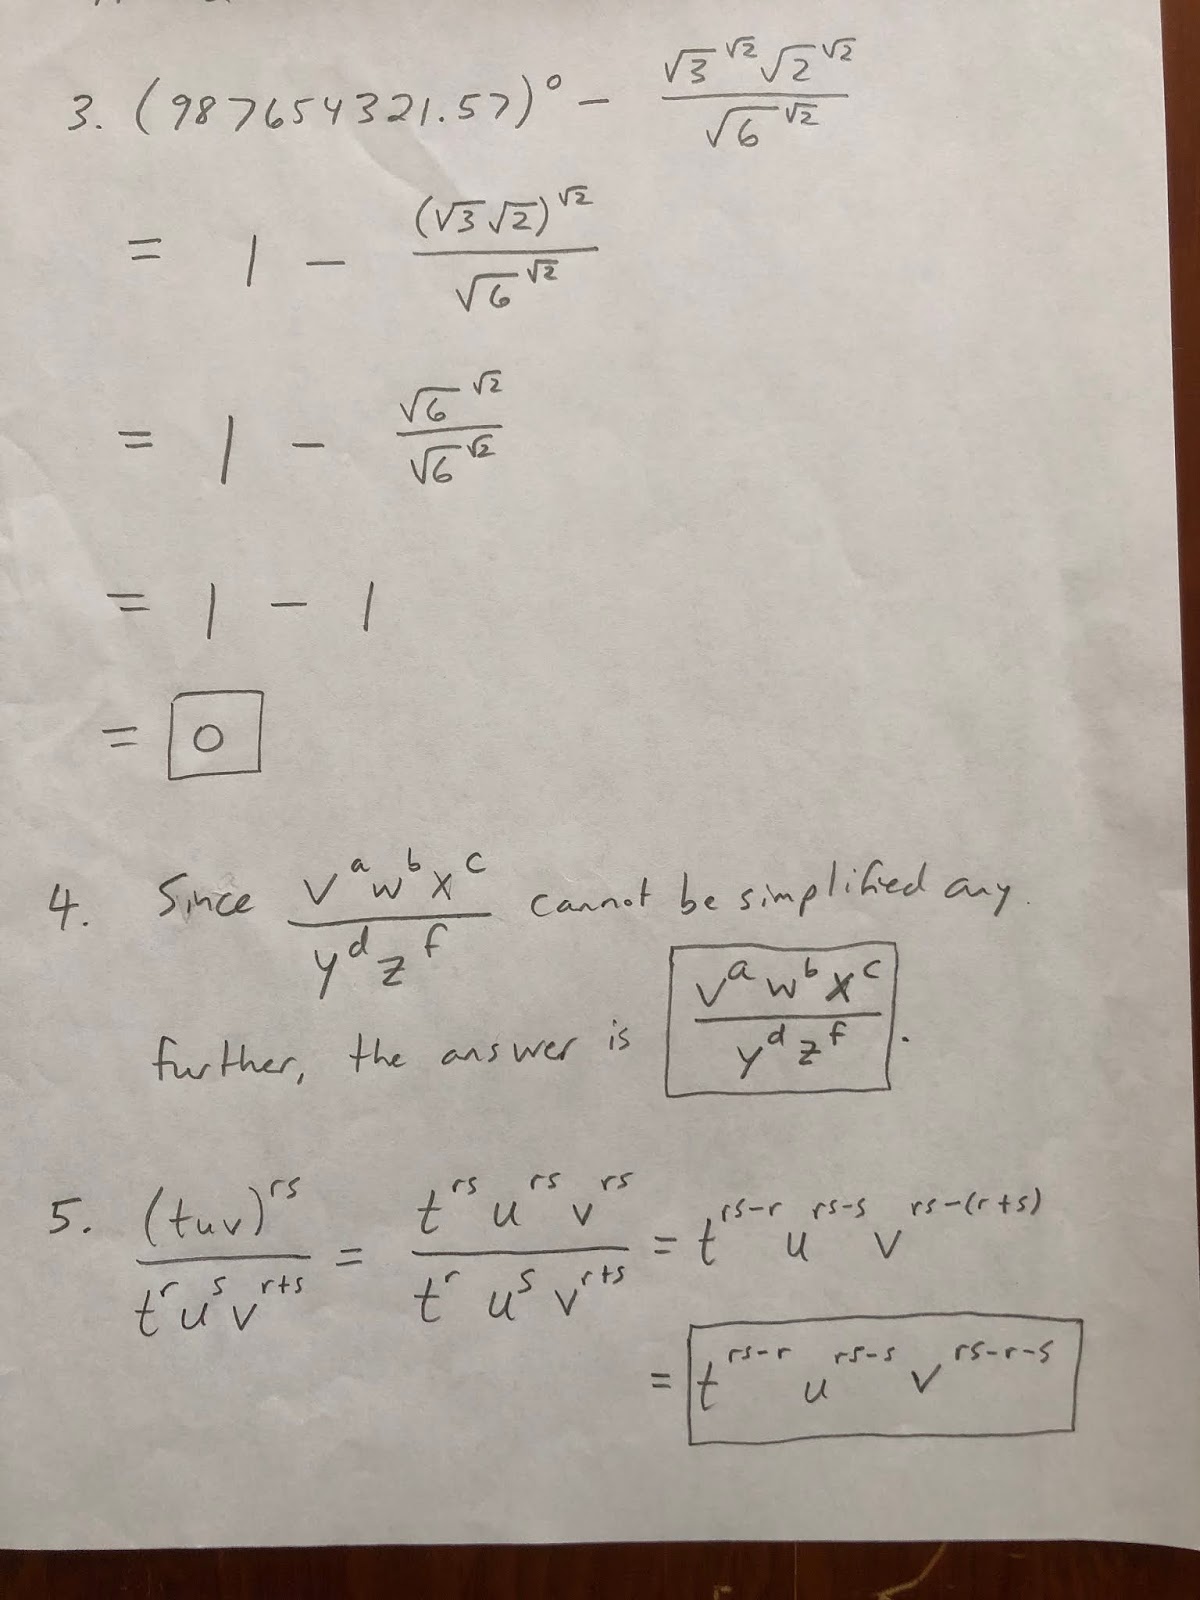 3. (987654321.57)⁰ − (√3^√2 √2^√2)/(√6^√2)
= 1 − ((√3 √2)^√2)/(√6^√2)
= 1 − (√6^√2)/(√6^√2)
= 1 − 1
= 0
4. Since (v^a w^b x^c)/(y^d z^f) cannot be simplified any
further, the answer is (v^a w^b x^c)/(y^d z^f).
5. (tuv)^rs/(t^r u^s v^(r+s)) = (t^rs u^rs v^rs)/(t^r u^s v^(r+s)) = t^(rs-r) u^(rs-s) v^(rs-(r+s))
= t^(rs-r) u^(rs-s) v^(rs-r-s)